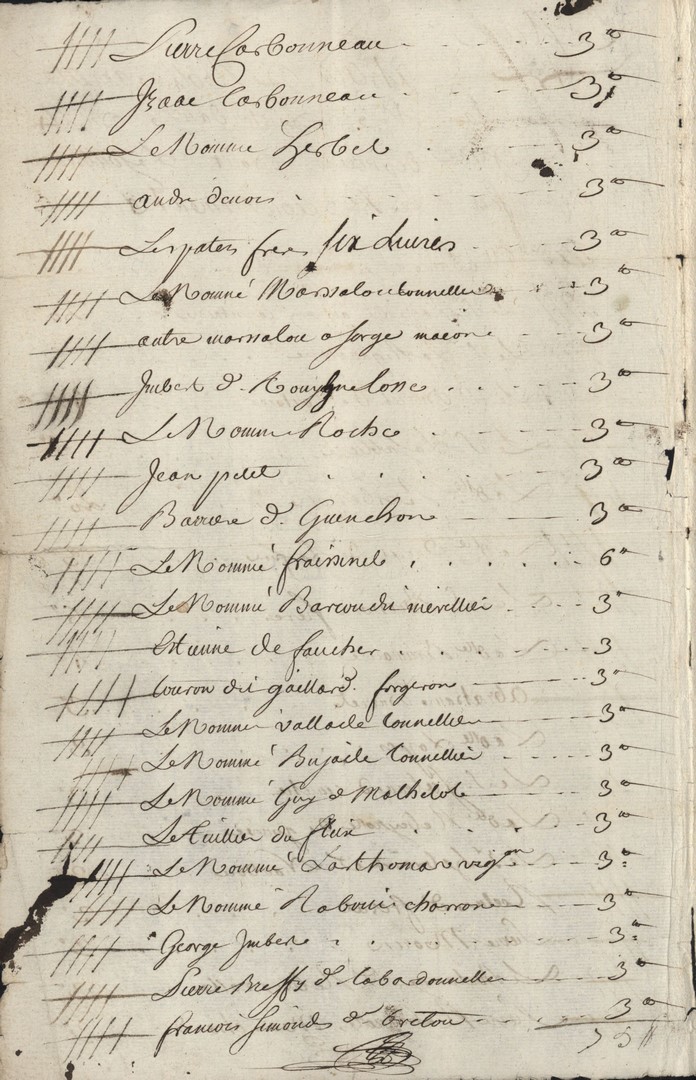 Pierre Carbonneau - - - - 3"
Izaac Carbonneau - - - 3"
Le Nommé Herbet - - 3"
andre denois - - 3"
Les paters freres six livres - - 3"
Le Nommé Marssalou tonnellier - - 3"
autre marssalou a forge macon - - 3"
Jmbert d. - - - 3"
Le Nommé Roche - - 3"
Jean petit - - - 3"
Barriere d. Guenchon - - 3"
Le Nommé fraissinet - - - 6"
Le Nommé Barcou du merillier - - - 3"
Etienne de faucher - - - 3
Couron dit gaillard. forgeron - - - 3"
Le Nommé vallade tonnellier - - - 3"
Le Nommé Bujacle tonnellier - - - 3"
Le Nommé Guy d Mathelot - - 3"
Le Tuillier du fleix - - 3"
Le Nommé Larthomas vigon - - 3"
Le Nommé Raboui charron - - 3"
George Jmbert - - - 3"
Pierre d. labardonnelle - - 3"
francois Simonds d. breton - - - 3"
75 ll